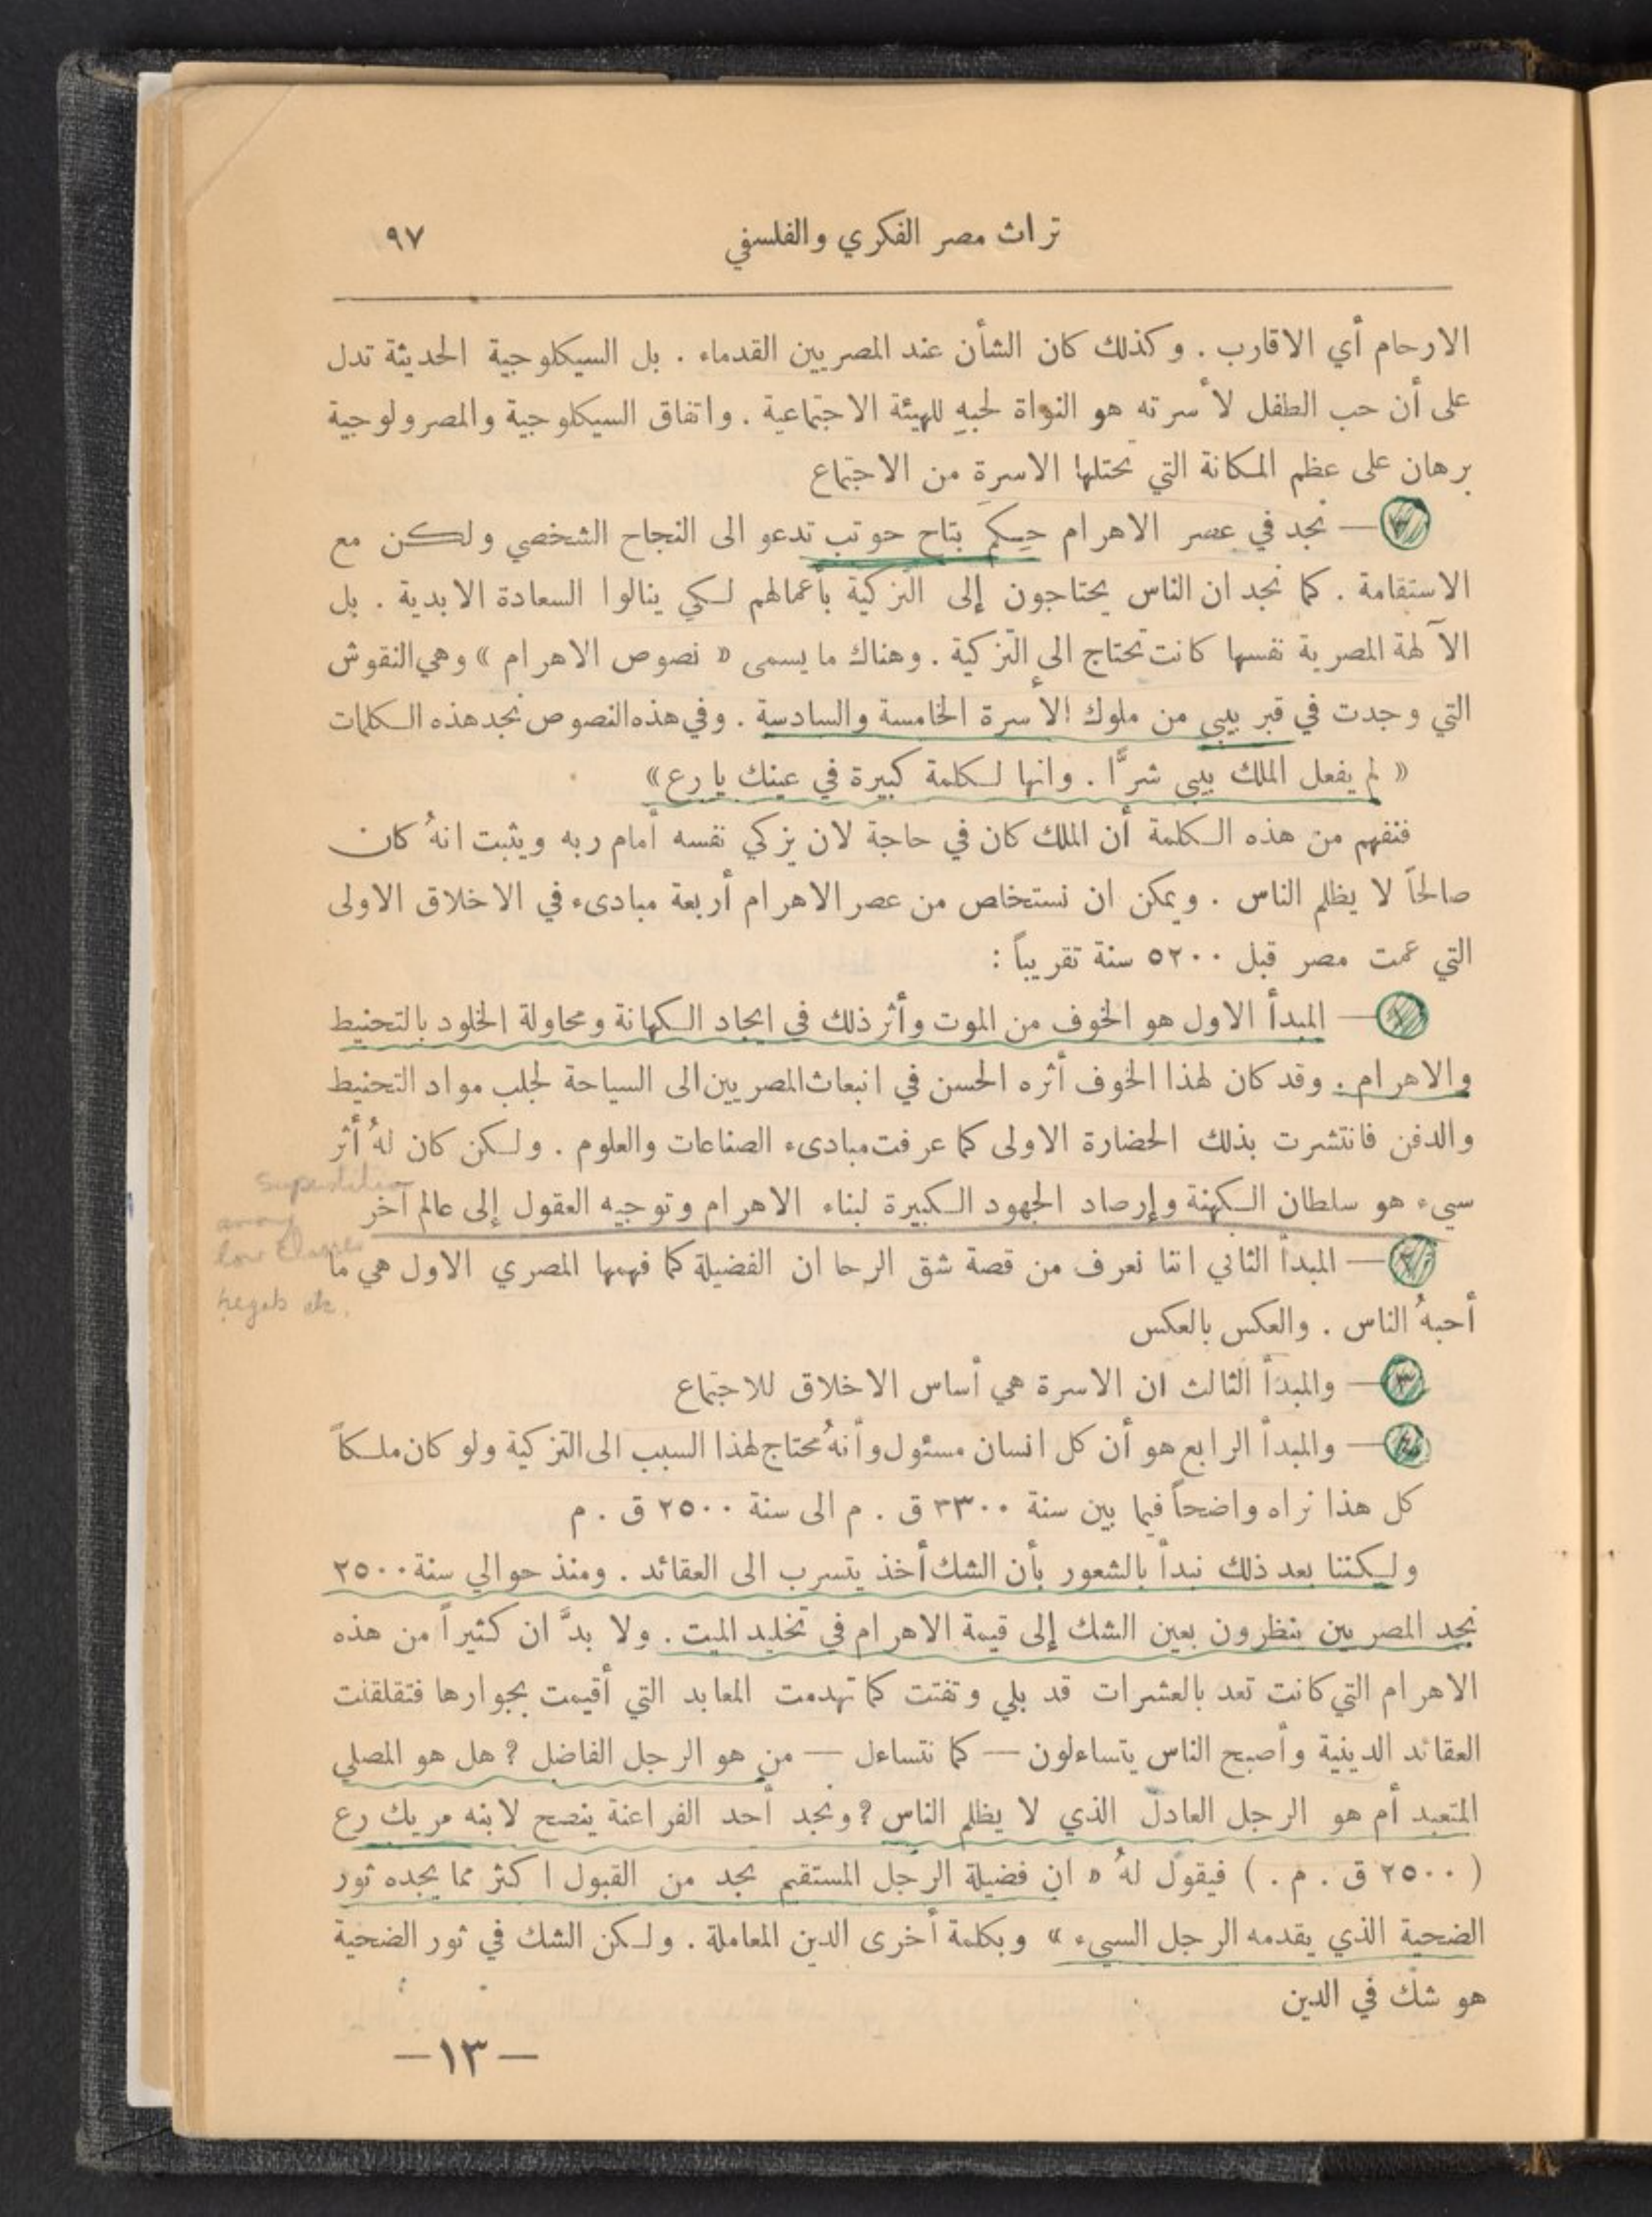 تراث مصر الفكري والفلسفي ٩٧
الارحام أي الاقارب . وكذلك كان الشأن عند المصريين القدماء . بل السيكلوجية الحديثة تدل
على أن حب الطفل لأسرته هو النواة لحبهِ للهيئة الاجتماعية . واتفاق السيكلوجية والمصرولوجية
برهان على عظم المكانة التي تحتلها الاسرة من الاجتماع
— نجد في عصر الاهرام حِكم بتاح حوتب تدعو الى النجاح الشخصي ولكن مع
الاستقامة . كما نجد ان الناس يحتاجون إلى التزكية بأعمالهم لكي ينالوا السعادة الابدية . بل
الآلهة المصرية نفسها كانت تحتاج الى التزكية . وهناك ما يسمى « نصوص الاهرام » وهي النقوش
التي وجدت في قبر بيبي من ملوك الأسرة الخامسة والسادسة . وفي هذه النصوص نجد هذه الكلمات
« لم يفعل الملك بيبي شرًّا . وانها لكلمة كبيرة في عينك يا رع »
فنفهم من هذه الكلمة أن الملك كان في حاجة لان يزكي نفسه أمام ربه ويثبت انهُ كان
صالحاً لا يظلم الناس . ويمكن ان نستخلص من عصر الاهرام أربعة مبادىء في الاخلاق الاولى
التي عمت مصر قبل ٥٢٠٠ سنة تقريباً :
١ — المبدأ الاول هو الخوف من الموت وأثر ذلك في ايجاد الكهانة ومحاولة الخلود بالتحنيط
والاهرام . وقد كان لهذا الخوف أثره الحسن في انبعاث المصريين الى السياحة لجلب مواد التحنيط
والدفن فانتشرت بذلك الحضارة الاولى كما عرفت مبادىء الصناعات والعلوم . ولكن كان لهُ أثر
سيىء هو سلطان الكهنة وإرصاد الجهود الكبيرة لبناء الاهرام وتوجيه العقول إلى عالم آخر
Superstition
among
low classes
hegab etc.
٢ — المبدأ الثاني اننا نعرف من قصة شق الرحا ان الفضيلة كما فهمها المصري الاول هي ما
أحبهُ الناس . والعكس بالعكس
٣ — والمبدأ الثالث ان الاسرة هي أساس الاخلاق للاجتماع
٤ — والمبدأ الرابع هو أن كل انسان مسئول وأنهُ محتاج لهذا السبب الى التزكية ولو كان ملكاً
كل هذا نراه واضحاً فيما بين سنة ٣٣٠٠ ق . م الى سنة ٢٥٠٠ ق . م
ولكننا بعد ذلك نبدأ بالشعور بأن الشك أخذ يتسرب الى العقائد . ومنذ حوالي سنة ٢٥٠٠
نجد المصريين ينظرون بعين الشك إلى قيمة الاهرام في تخليد الميت . ولا بدَّ ان كثيراً من هذه
الاهرام التي كانت تعد بالعشرات قد بلي وتفتت كما تهدمت المعابد التي أقيمت بجوارها فتقلقلت
العقائد الدينية وأصبح الناس يتساءلون — كما نتساءل — من هو الرجل الفاضل ? هل هو المصلي
المتعبد أم هو الرجل العادل الذي لا يظلم الناس ? ونجد أحد الفراعنة ينصح لابنه مريك رع
( ٢٥٠٠ ق . م . ) فيقول لهُ « ان فضيلة الرجل المستقيم تجد من القبول اكثر مما يجده ثور
الضحية الذي يقدمه الرجل السيىء » وبكلمة أخرى الدين المعاملة . ولكن الشك في ثور الضحية
هو شك في الدين
— ١٣ —